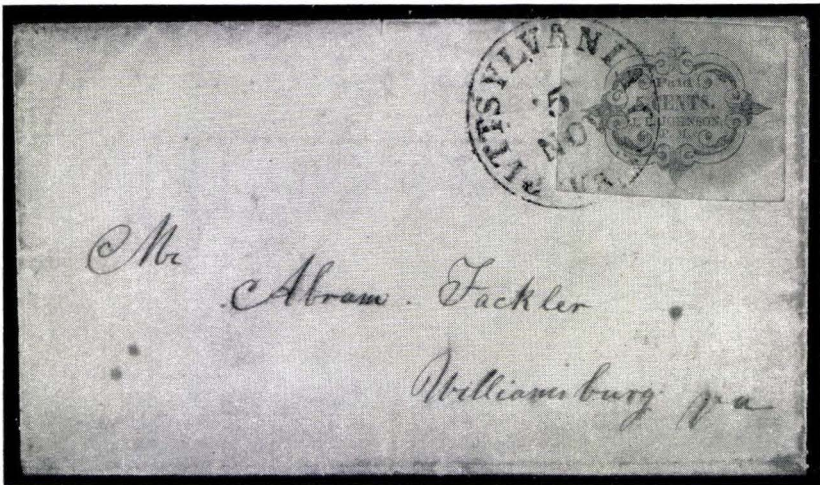 PITTSYLVANI
5
NO
VA
Paid
5 CENTS.
JOHNSON,
P. M.
Mr
Abram Fackler
Williamsburg va